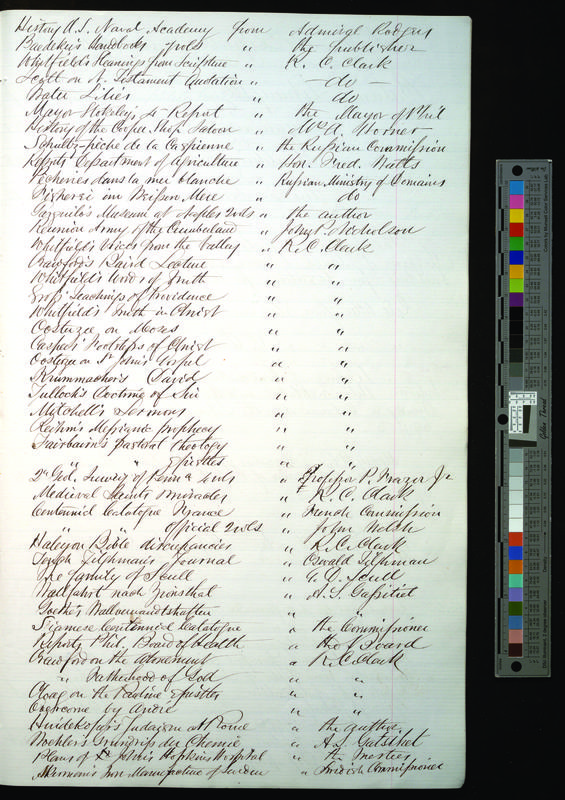 History U.S. Naval Academy from Admiral Rodgers
Baedeker's Handbooks vols " the publisher
Whitfield's Gleanings from Scripture " R. C. Clark
Scott on N. Testament Quotation " do
Water Lilies " do
Mayor Stokeley's Report " the Mayor of Phil
History of the Cooper Shop Saloon " Mrs Horner
Schultz - pêche de la Caspienne " the Russian Commission
Reports Department of Agriculture " Hon. Fred. Watts
Pecheries dans la mer blanche " Russian Ministry of Domains
Fischerei im Weissen Meere " do
Museum of Naples 2 vols " the author
Reunion Army of the Cumberland " John Nicholson
Whitfield's Voices from the Valley " R. C. Clark
Crawford's Baird Lecture " "
Whitfield's Word of Truth " "
Teachings of Providence " "
Whitfield's Truth in Christ " "
Oosterzee on Moses " "
Caspers Footsteps of Christ " "
Oosterzee on St John's Gospel " "
Krummacher's David " "
Tullock's Doctrine of Sin " "
Mitchell's Sermons " "
Riehm's Messianic prophecy " "
Fairbairn's Pastoral theology " "
" " Epistles " "
2d Geol. Survey of Penna vols " Professor P. Frazer Jr
Medieval Saints Miracles " R. C. Clark
Centennial Catalogue France " French Commission
" " official 2 vols " John Welsh
Haley on Bible discrepancies " R. C. Clark
Tench Tilghman's Journal " Oswald Tilghman
The family of Scull " G. D. Scull
Wallfahrt nach " A. S.
Goethe's Wallverwandtschaften " "
Siamese Centennial Catalogue " the Commissioner
Reports Phil. Board of Health " the Board
Crawford on the atonement " R. C. Clark
" Fatherhood of God " "
Gloag on the Pauline Epistles " "
Overcome by André " "
Huidekoper's Judaism at Rome " the author
Woehler's Grundriss der Chemie " A. S. Gatschet
Plans of the Johns Hopkins Hospital " the Trustees
Akerman's Iron Manufacture of Sweden " Swedish Commissioner